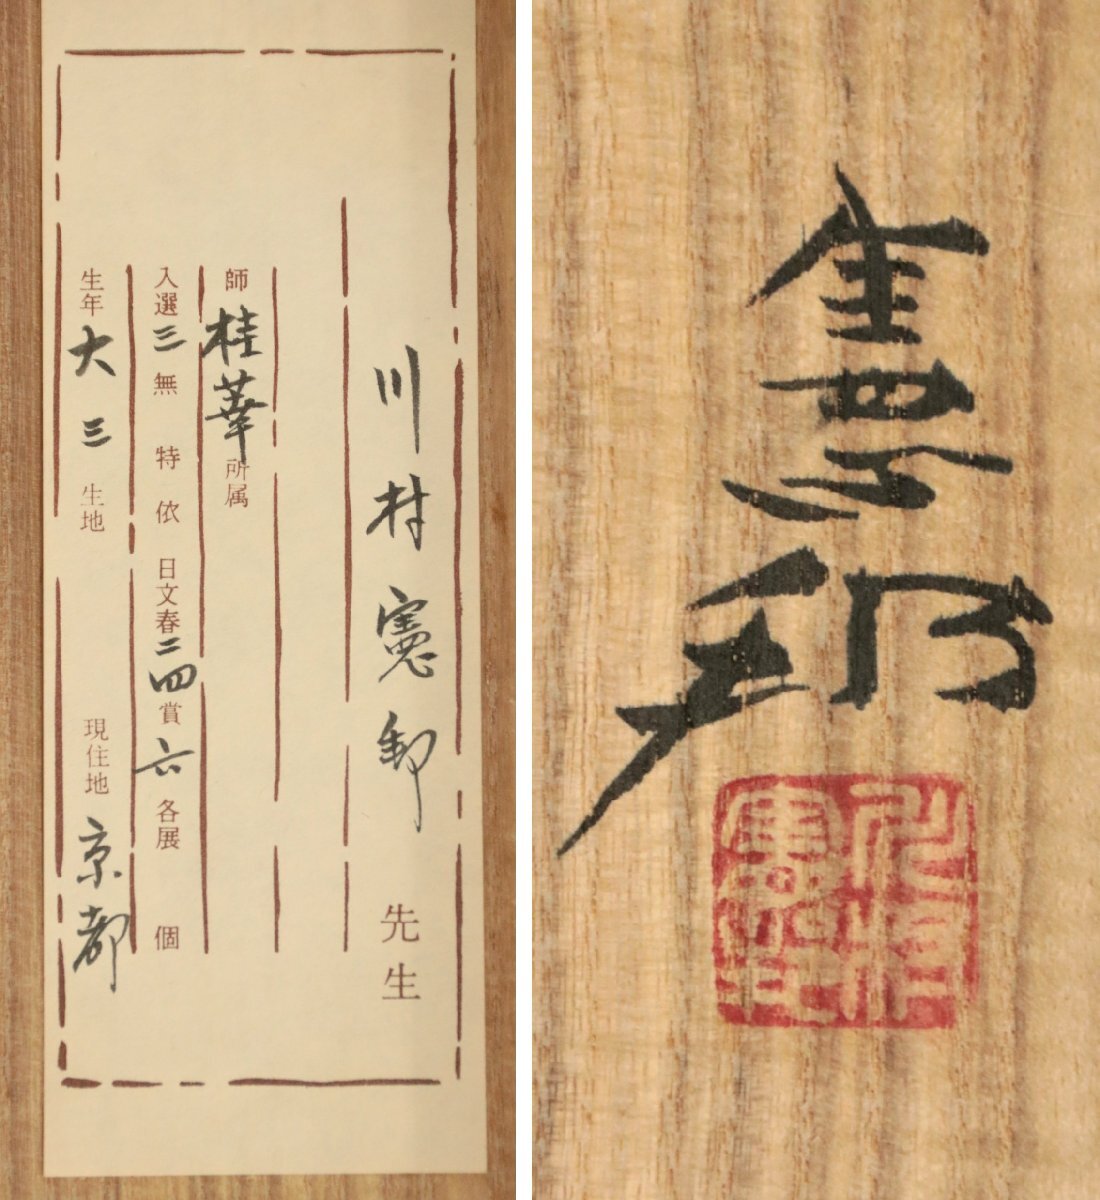 川村憲邦先生
師桂華所属
入選三無特依日文春二四賞六各展個
生年大三生地現住地京都
憲邦